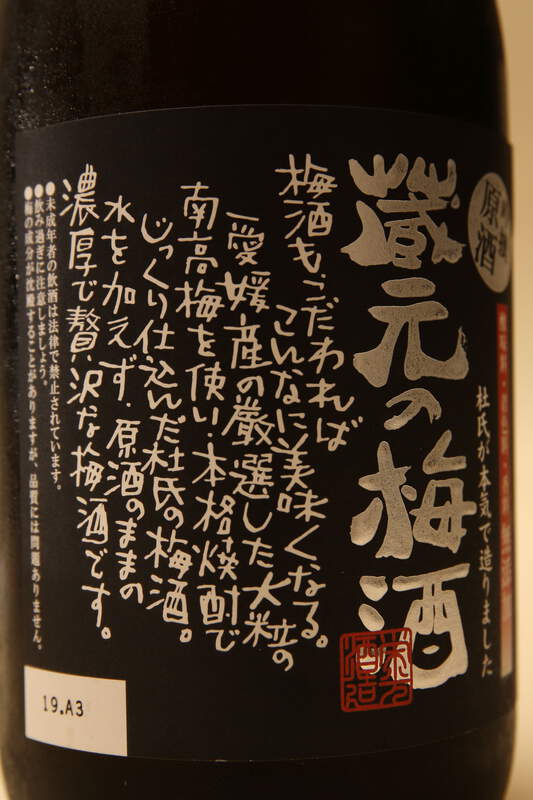 原酒
杜氏が本気で造りました
蔵元の梅酒
梅酒も、こだわれば
こんなに美味くなる。
愛媛産の厳選した大粒の
南高梅を使い、本格焼酎で
じっくり仕込んだ杜氏の梅酒。
水を加えず、原酒のままの
濃厚で贅沢な梅酒です。
●未成年者の飲酒は法律で禁止されています。
●飲み過ぎに注意しましょう。
●梅の成分が沈殿することがありますが、品質には問題ありません。
19.A3